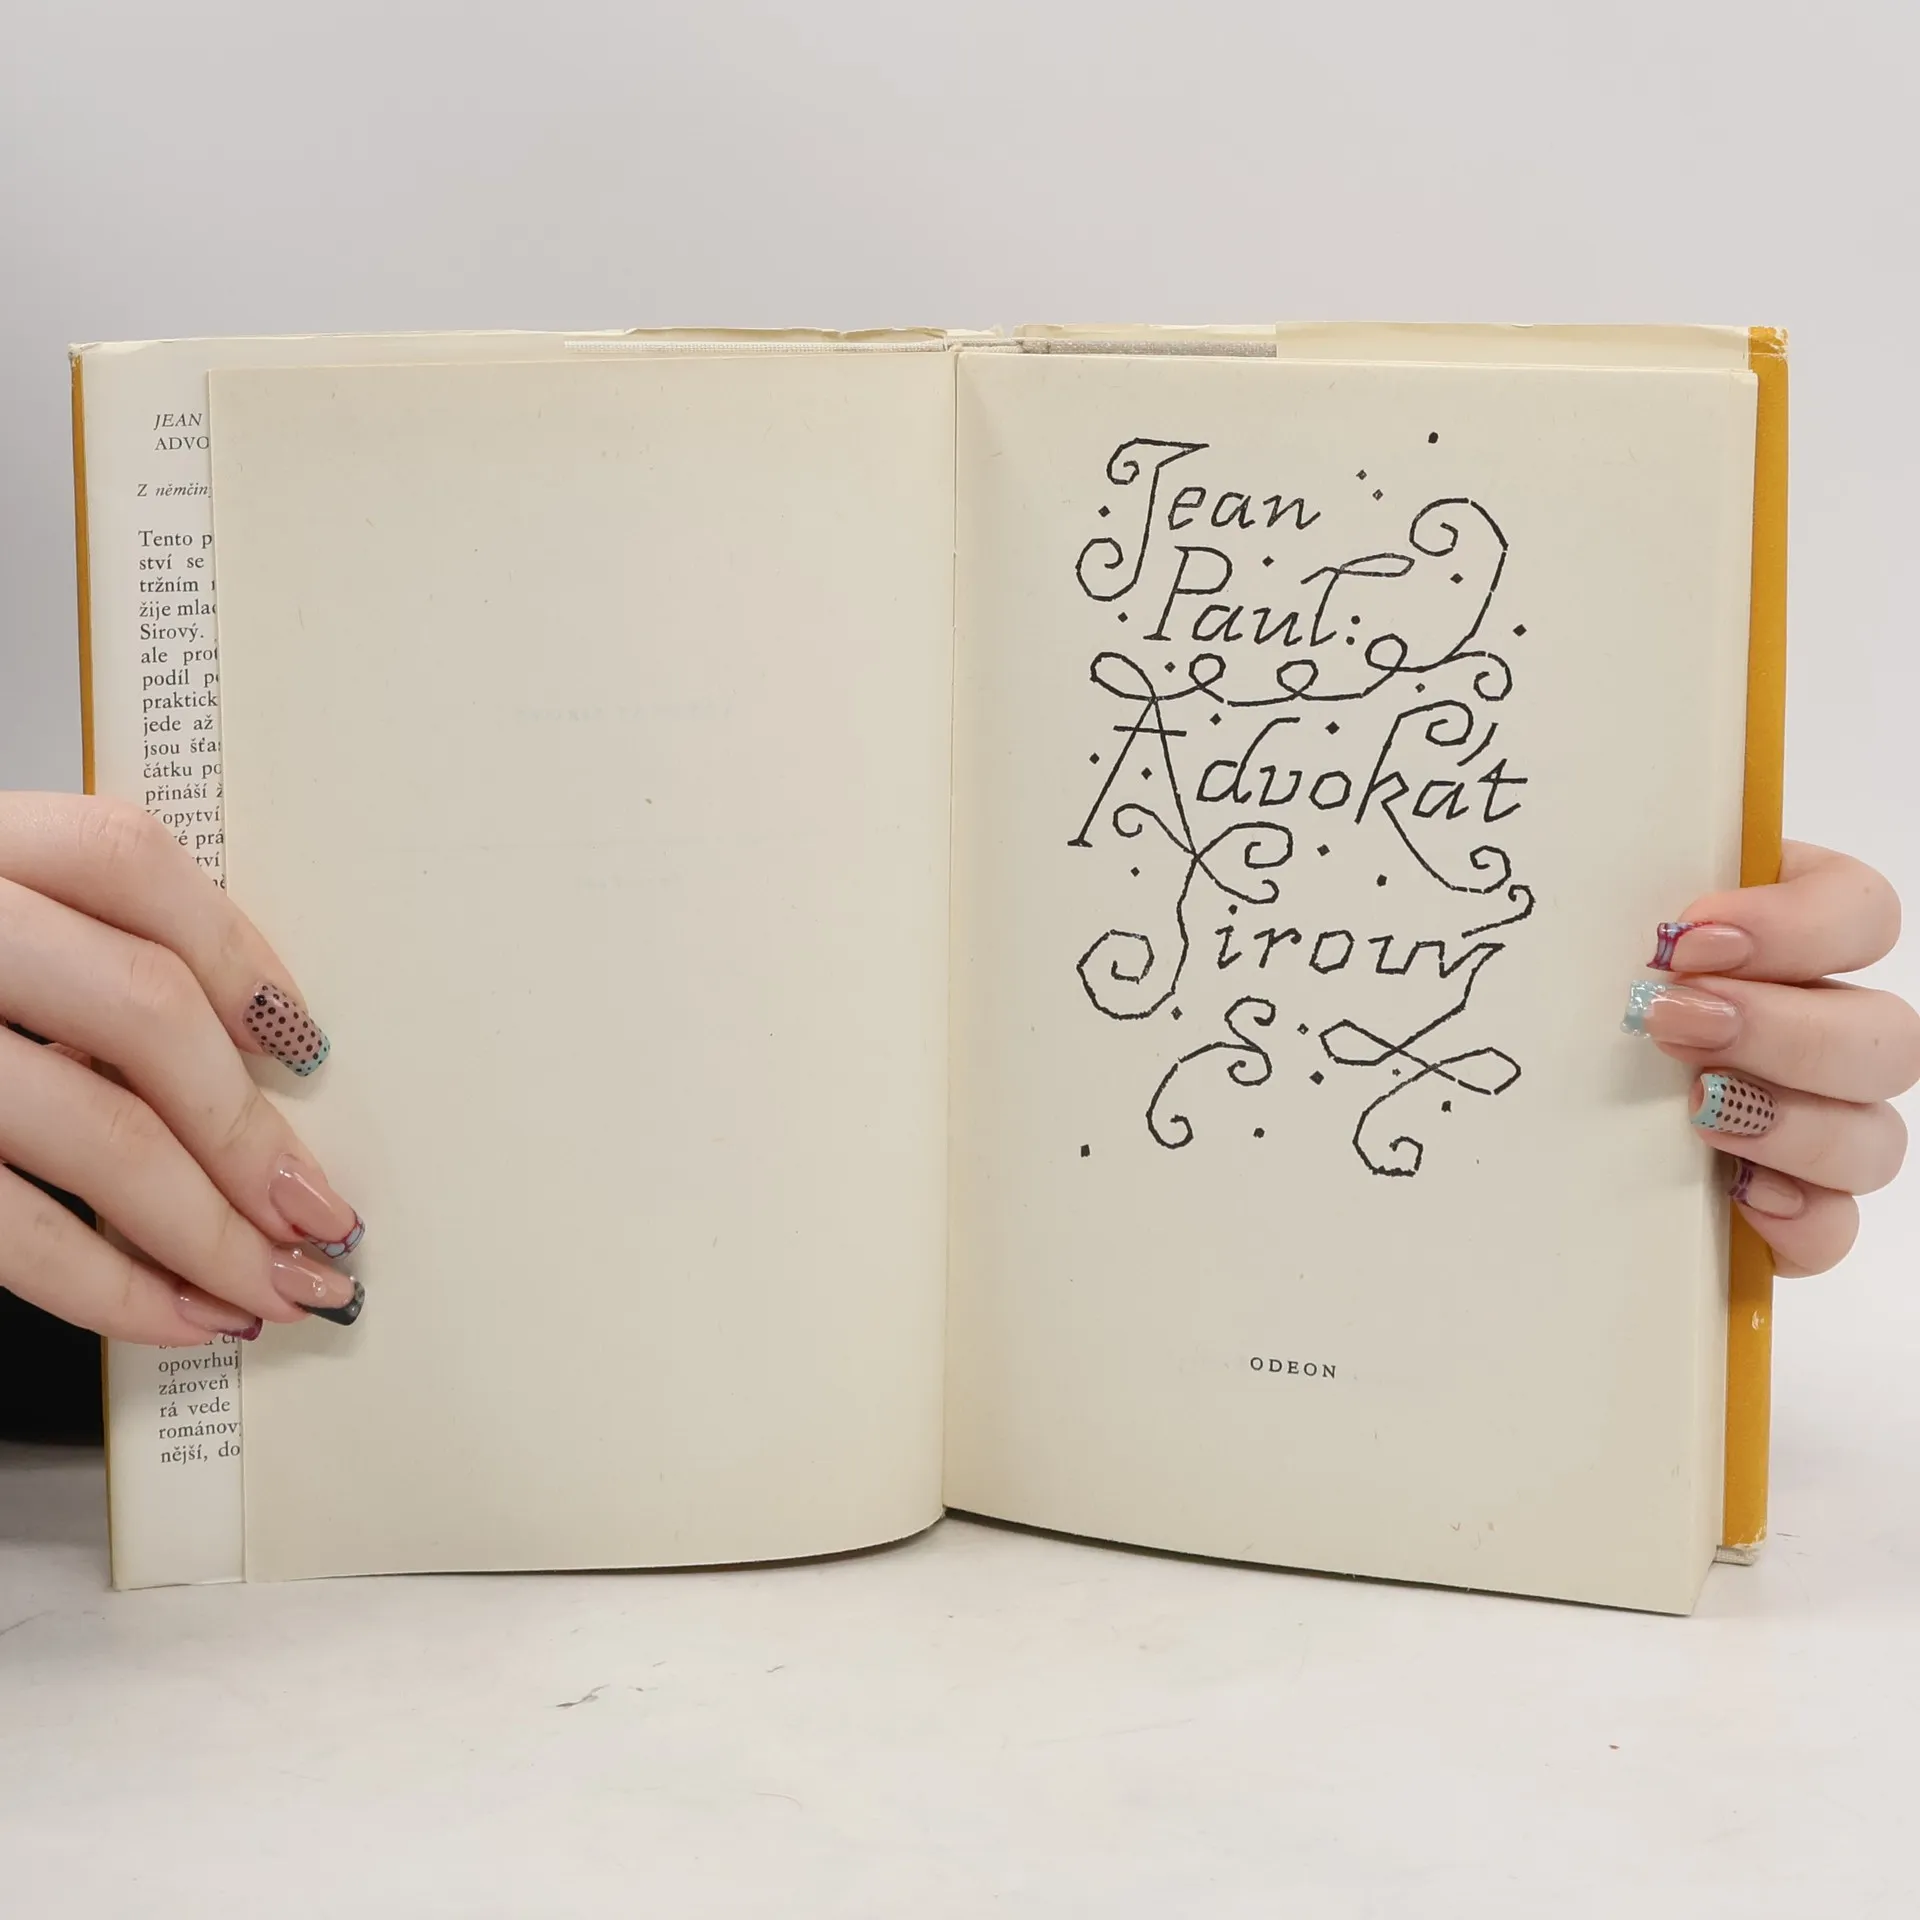 JEAN
ADVO
Z němčin
Tento p
ství se
tržním
žije mla
Sirový.
ale prot
podíl p
praktick
jede až
jsou šťa
čátku po
přináší ž
Kopytví
vé prá
tví
opovrhuj
zároveň
rá vede
románov
nější, do
Jean
Paul:
Advokát
Sirový
ODEON